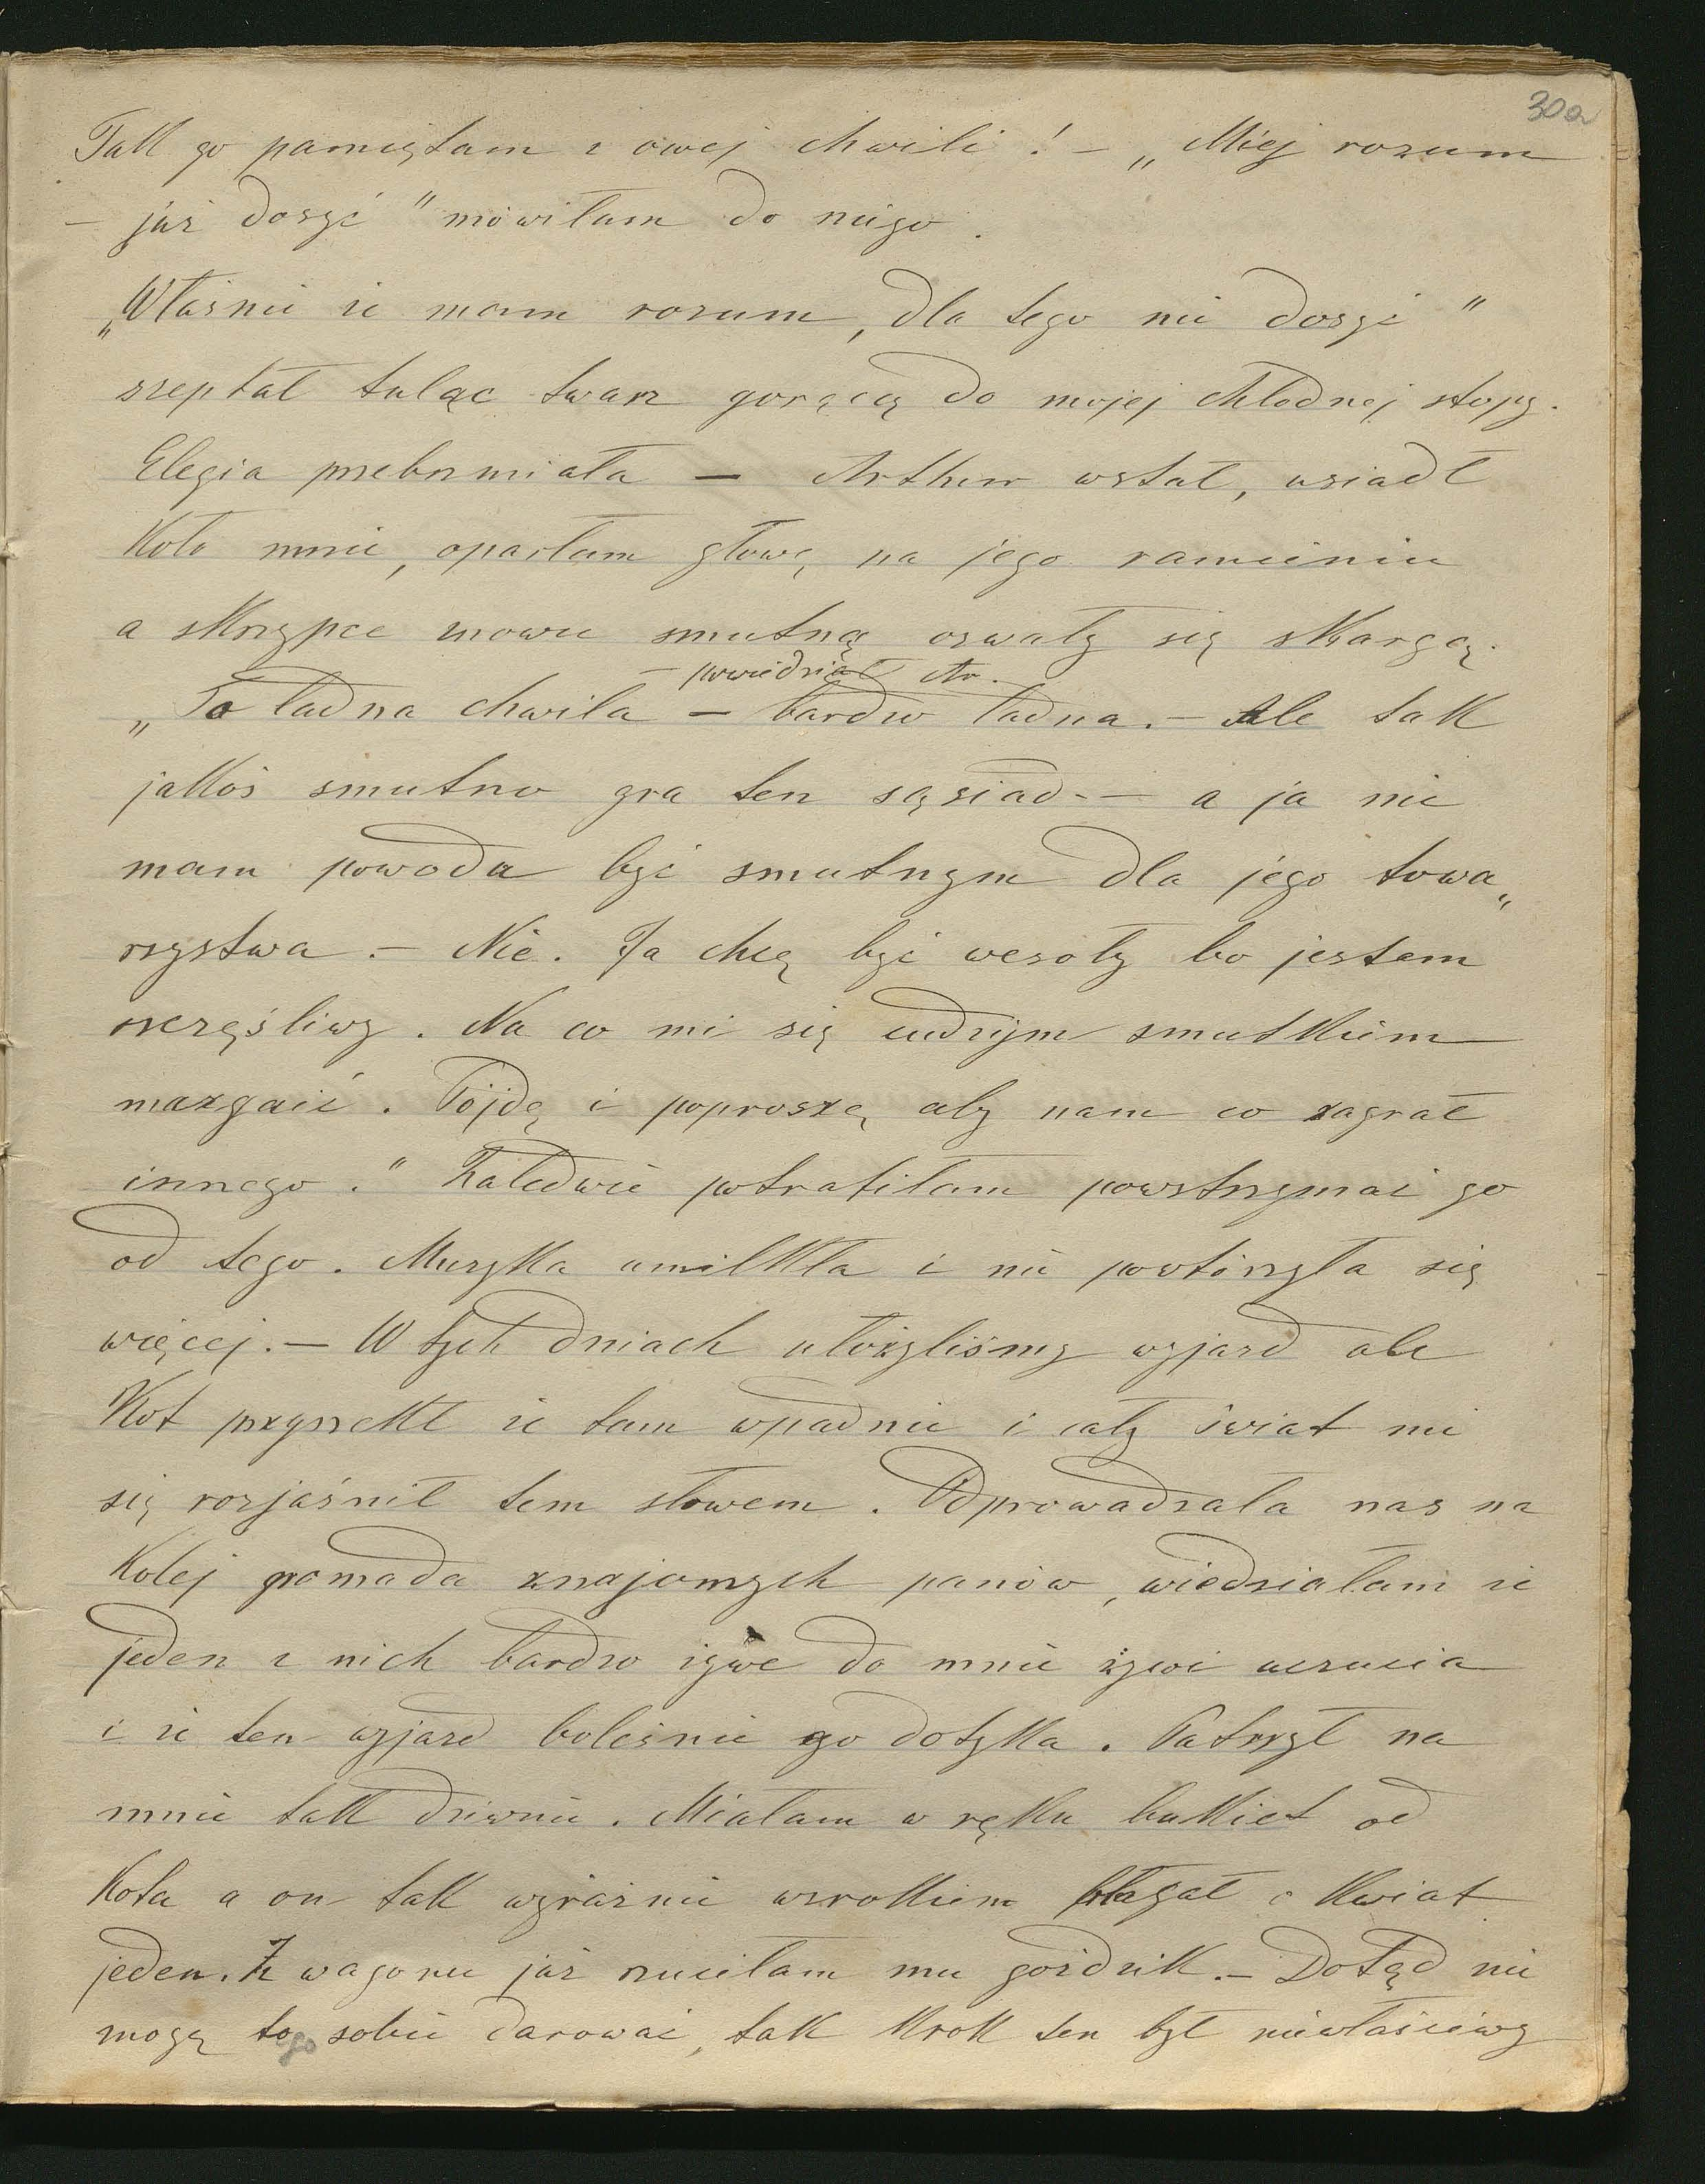 30a
Tak go pamiętam z owej chwili! – „Miej rozum
– już dosyć" mówiłam do niego.
„Właśnie że mam rozum, dla tego nie dosyć"
szeptał tuląc twarz gorącą do mojej chłodnej stopy.
Elegia przebrzmiała – Arthur wstał, usiadł
koło mnie, oparłam głowę na jego ramieniu
a skrzypce znowu smutną ozwały się skargą.
– powiedział Ar.
„To ładna chwila – bardzo ładna. – Ale tak
jakoś smutno gra ten sąsiad – a ja nie
mam powodu być smutnym dla jego towa„
rzystwa. – Nie. Ja chcę być wesoły bo jestem
szczęśliwy. Na co mi się cudzym smutkiem
mazgaić. Pójdę i poproszę aby nam co zagrał
innego." Zaledwie potrafiłam powstrzymać go
od tego. Muzyka umilkła i nie powtórzyła się
więcej. – W tych dniach ułożyliśmy wyjazd ale
Kot przyrzekł że tam wpadnie i cały świat mi
się rozjaśnił tem słowem. Odprowadzała nas na
kolej gromada znajomych panów, wiedziałam że
jeden z nich bardzo żywe do mnie żywi uczucia
i że ten wyjazd boleśnie go dotyka. Patrzył na
mnie tak dziwnie. Miałam w ręku bukiet od
Kota a on tak wyraźnie wzrokiem błagał o kwiat
jeden. Z wagonu już rzuciłam mu goździk. – Dotąd nie
mogę tego sobie darować, tak krok ten był niewłaściwy